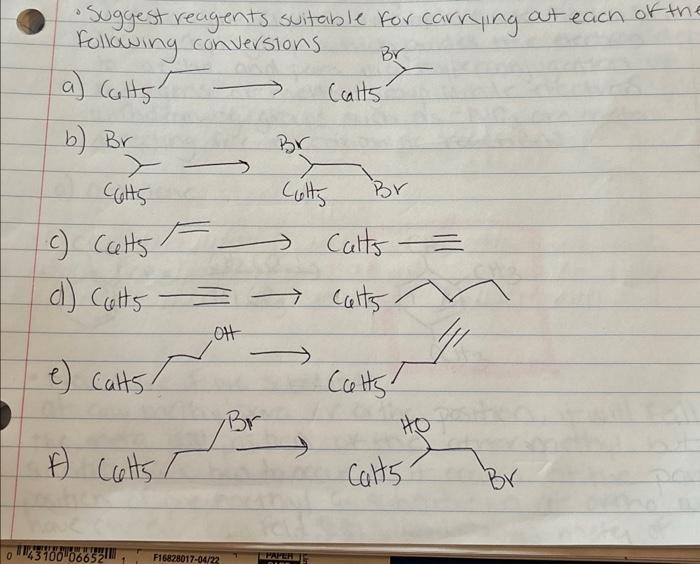 • Suggest reagents suitable for carrying out each of the
following conversions
a) C6H5 → Br C6H5
b) Br C6H5 → Br C6H5 Br
c) C6H5 → C6H5
d) C6H5 → C6H5
e) C6H5 OH → C6H5
f) C6H5 Br → HO C6H5 Br
0 43100 06652 1 F16828017-04/22 PAPER